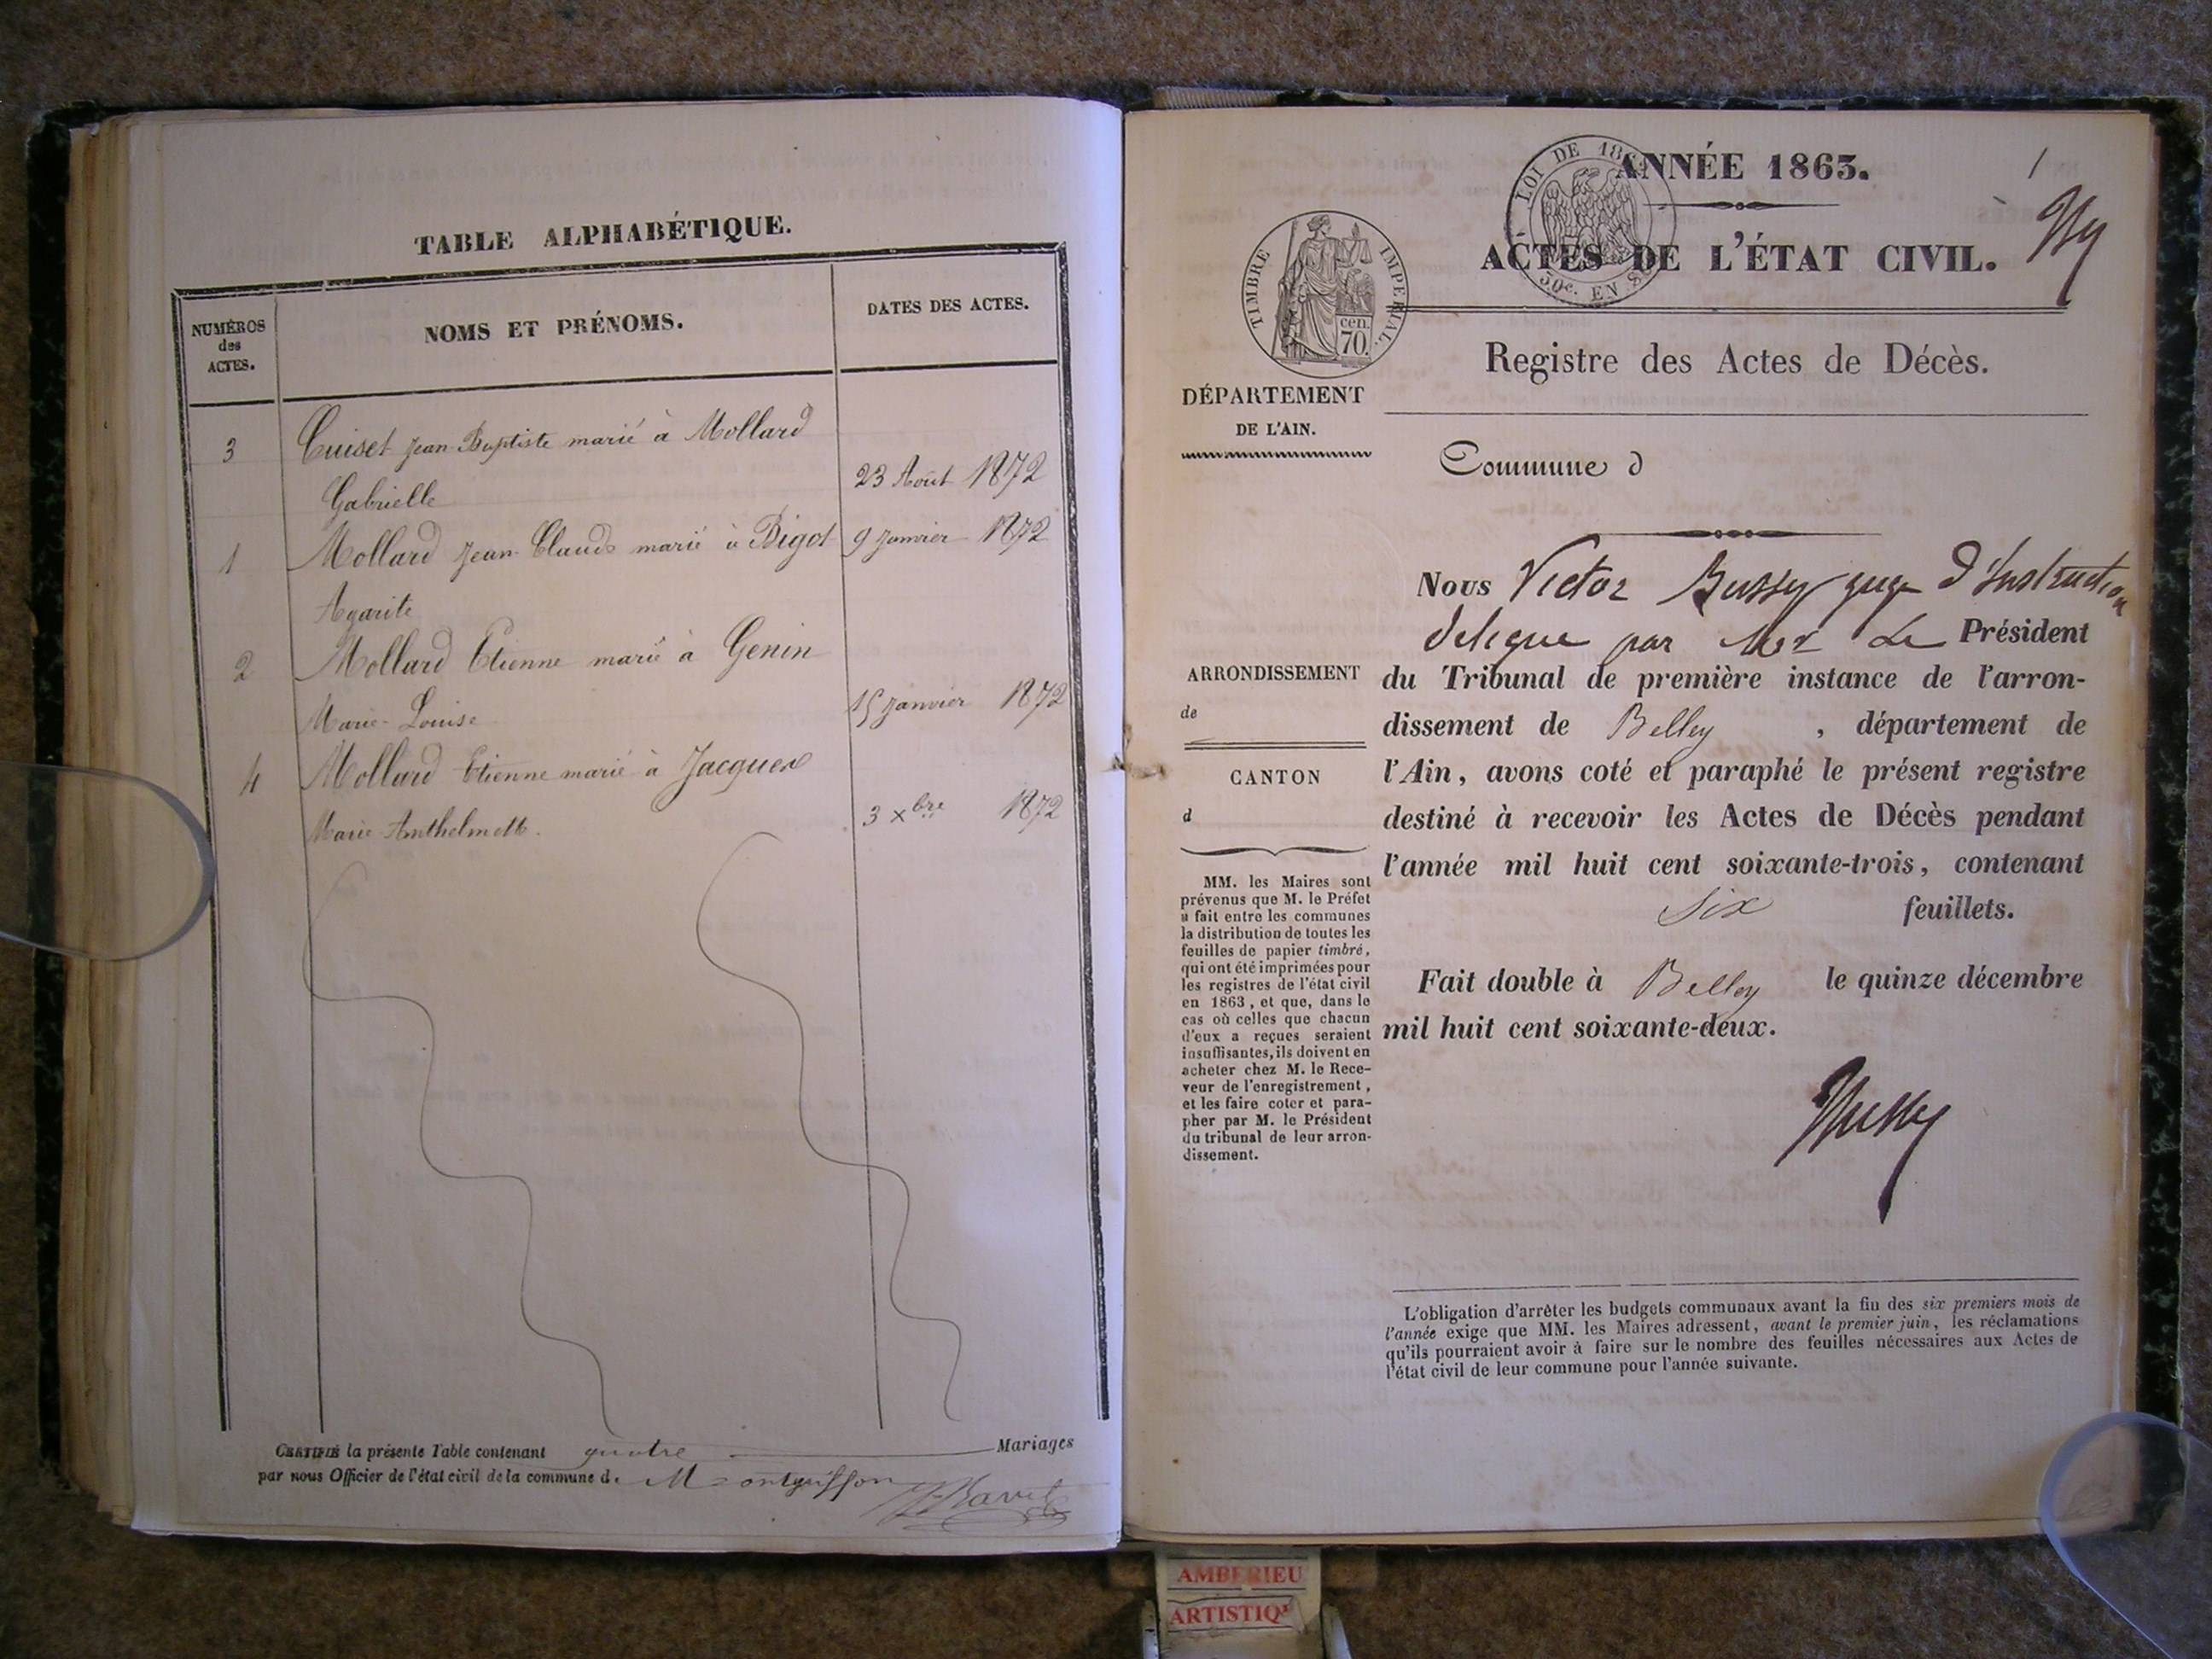 TABLE ALPHABÉTIQUE.
NUMÉROS
des
ACTES.
NOMS ET PRÉNOMS.
DATES DES ACTES.
3 Cuiset Jean-Baptiste marié à Mollard
Gabrielle 23 Août 1872
1 Mollard Jean-Claude marié à Bigot 9 Janvier 1872
Agarite
2 Mollard Etienne marié à Genin
Marie-Louise 15 Janvier 1872
4 Mollard Etienne marié à Jacquer
Marie Anthelmette. 3 xbre 1872
CERTIFIÉ la présente Table contenant quatre Mariages
par nous Officier de l'état civil de la commune d
ANNÉE 1863.
1
LOI DE
50c. EN S
TIMBRE IMPERIAL.
cen.
70.
ACTES DE L'ÉTAT CIVIL.
Registre des Actes de Décès.
DÉPARTEMENT
DE L'AIN.
Commune d
ARRONDISSEMENT
de
CANTON
d
MM. les Maires sont
prévenus que M. le Préfet
a fait entre les communes
la distribution de toutes les
feuilles de papier timbré,
qui ont été imprimées pour
les registres de l'état civil
en 1863, et que, dans le
cas où celles que chacun
d'eux a reçues seraient
insuffisantes, ils doivent en
acheter chez M. le Rece-
veur de l'enregistrement,
et les faire coter et para-
pher par M. le Président
du tribunal de leur arron-
dissement.
Nous Victor Bussy juge d'Instruction
délégué par Mr Le Président
du Tribunal de première instance de l'arron-
dissement de Belley, département de
l'Ain, avons coté et paraphé le présent registre
destiné à recevoir les Actes de Décès pendant
l'année mil huit cent soixante-trois, contenant
six feuillets.
Fait double à Belley le quinze décembre
mil huit cent soixante-deux.
Bussy
L'obligation d'arrêter les budgets communaux avant la fin des six premiers mois de
l'année exige que MM. les Maires adressent, avant le premier juin, les réclamations
qu'ils pourraient avoir à faire sur le nombre des feuilles nécessaires aux Actes de
l'état civil de leur commune pour l'année suivante.
AMBERIEU
ARTISTIQ